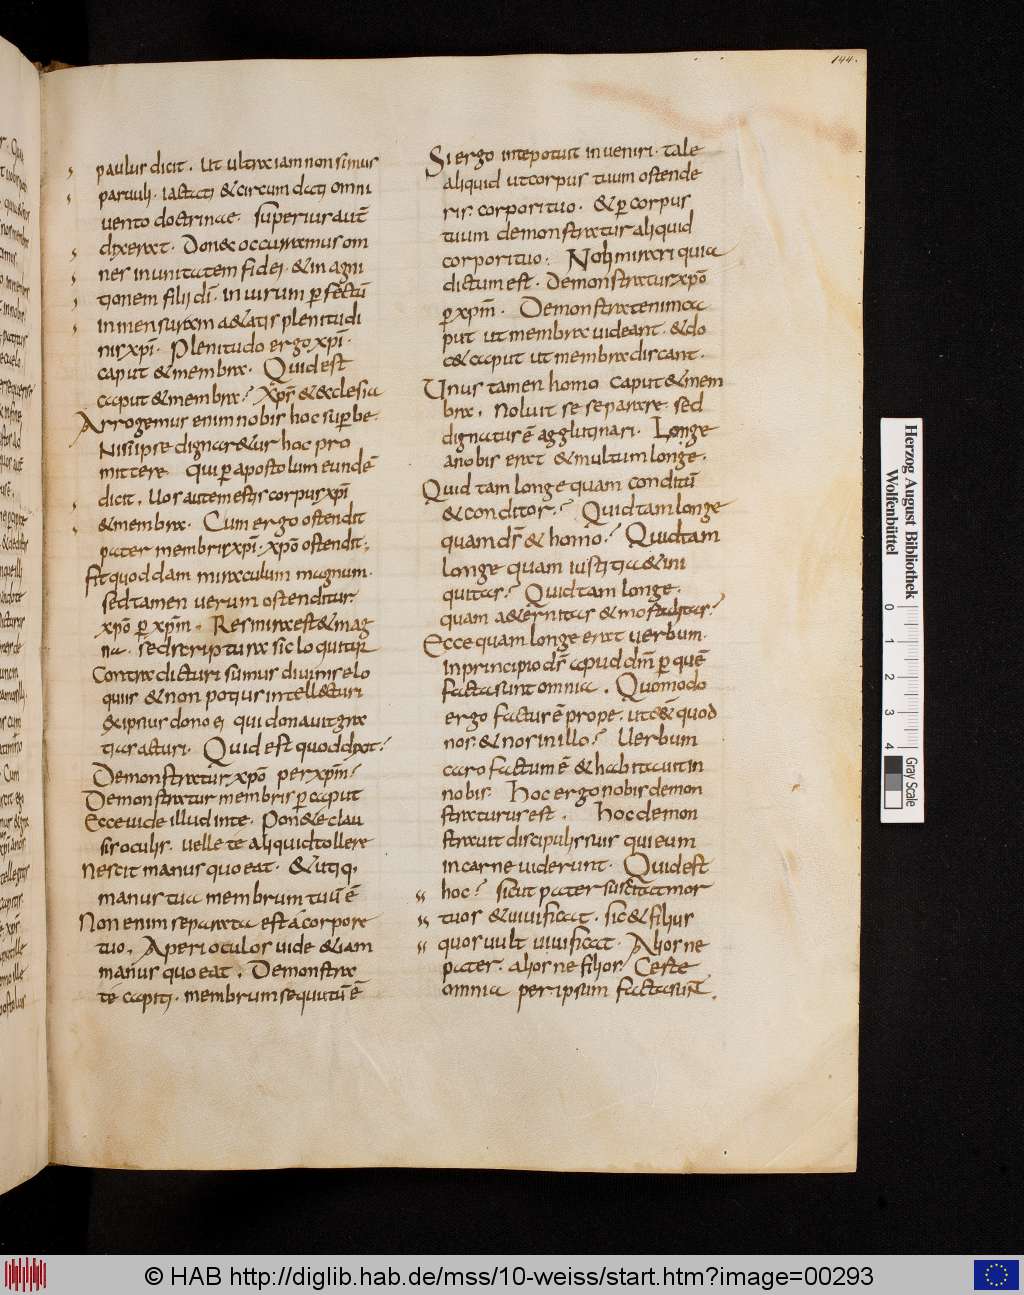 144.
paulus dicit. Ut ultra iam non simus
paruuli. iactati & circumdati omni
uento doctrinae. superius aut̄
dixerat. Donec occurramus om
nes in unitatem fidei. & in agni
tionem filii dī. in uirum ꝑfectū
in mensuram aetatis plenitudi
nis xp̄i. Plenitudo ergo xp̄i.
caput & membra. Quid est
caput & membra? Xp̄s & ecclesia
Arrogemus enim nobis hoc suꝑbe.
Nisi ipse dignaretur hoc pro
mittere qui ꝑ apostolum eundē
dicit. Uos autem estis corpus xp̄i
& membra. Cum ergo ostendit
pater membris xp̄i. xp̄o ostendit;
fit quoddam miraculum magnum.
sed tamen uerum ostenditur
xp̄o ꝑ xp̄m. Res mira est & mag
na. sed scriptura sic loquitur
Contradicturi sumus diuinis elo
quiis & non potius intellecturi
& ipsius dono ei qui donauit gra
tias acturi. Quid est quod dixit?
Demonstratur xp̄o per xp̄m?
Demonstratur membris ꝑ caput
Ecce uide illud in te. Pone te clau
sis oculis. uelle te aliquid tollere
nescit manus quo eat. & utiq,
manus tua membrum tuū ē
Non enim separata est a corpore
tuo. Aperi oculos uide & iam
manus quo eat. Demonstra
te capiti. membrum sequutū ē
Si ergo in te potuit inueniri. tale
aliquid ut corpus tuum ostende
ris corpori tuo. & ꝑ corpus
tuum demonstratur aliquid
corpori tuo. Noli mirari quia
dictum est. Demonstratur xp̄o
ꝑ xp̄m. Demonstrat enim ca
put ut membra uideant. & do
cet caput ut membra discant.
Unus tamen homo caput & mem
bra. Noluit se separare. sed
dignatus ē agglutinari. Longe
a nobis erat & multum longe.
Quid tam longe quam conditū
& conditor? Quid tam longe
quam dī & homo? Quid tam
longe quam iustitia & ini
quitas? Quid tam longe.
quam aet̄ernitas & mortalitas?
Ecce quam longe erat uerbum.
In principio dī apud dm̄ ꝑ quē
facta sunt omnia. Quomodo
ergo factus ē prope. ut eēt quod
nos & nos in illo? Uerbum
caro factum ē & habitauit in
nobis. Hoc ergo nobis demon
straturus est. Hoc demon
strauit discipulis suis qui eum
in carne uiderunt. Quid est
hoc? sicut pater suscitat mor
tuos & uiuificat. sic & filius
quos uult uiuificat. Alios ne
pater. alios ne filios? Certe
omnia per ipsum facta sunt.
Herzog August Bibliothek
Wolfenbüttel
0 1 2 3 4
Gray Scale
© HAB http://diglib.hab.de/mss/10-weiss/start.htm?image=00293